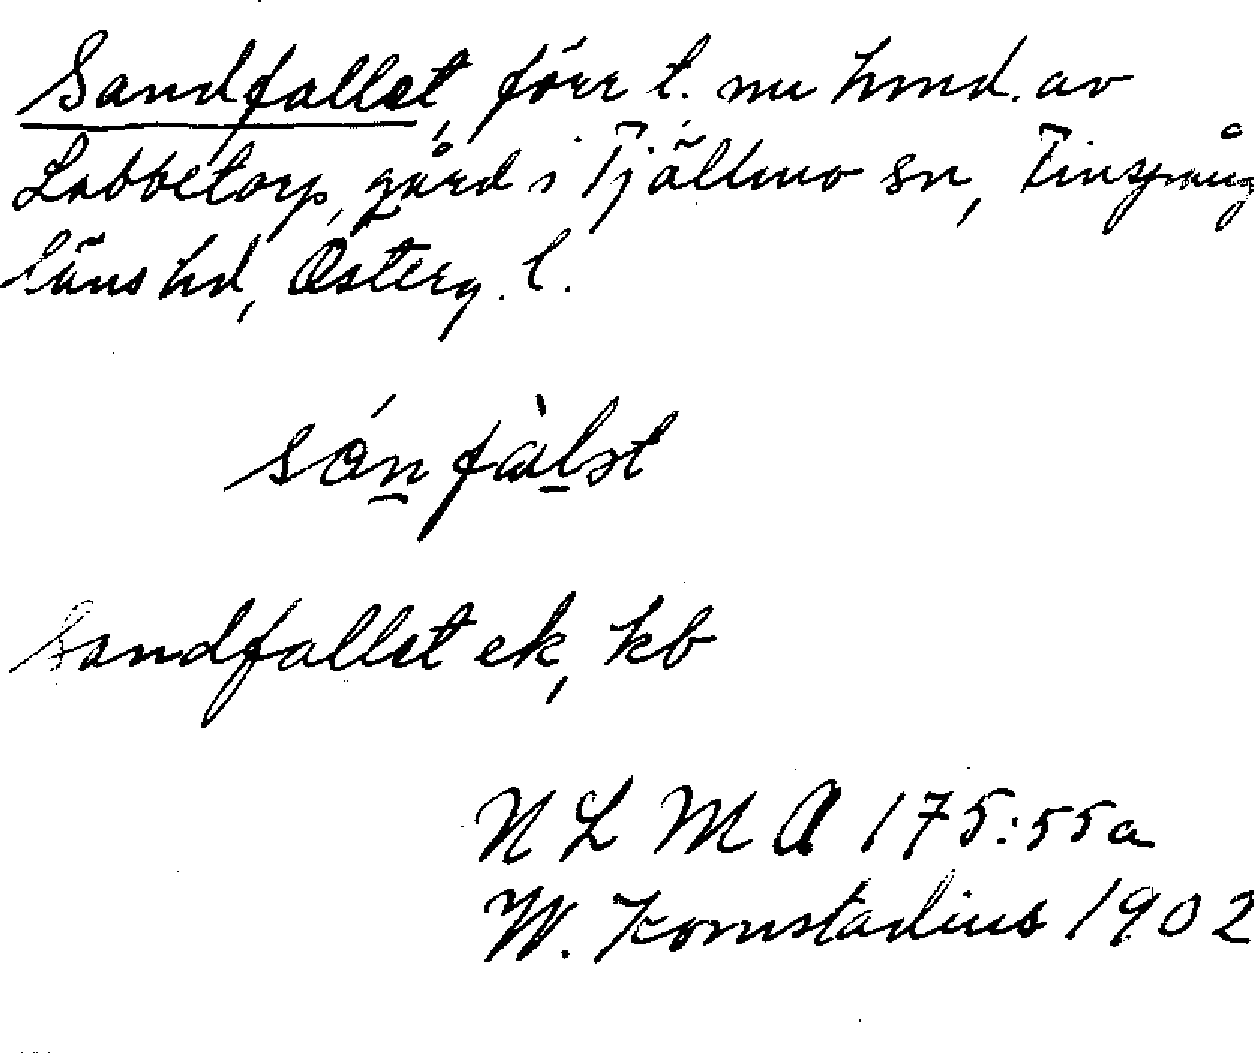 Sandfallet, förr t. nu hmd. av
Labbetorp, gård i Tjällmo sn, Finspång
läns hd, Österg. l.
sánfàlǝt
Sandfallet ek, kb
N L M A 175:55a
W. Komstadius 1902